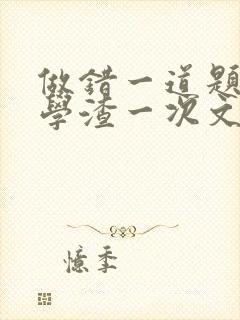 做錯一道題
學渣一次文
憶季